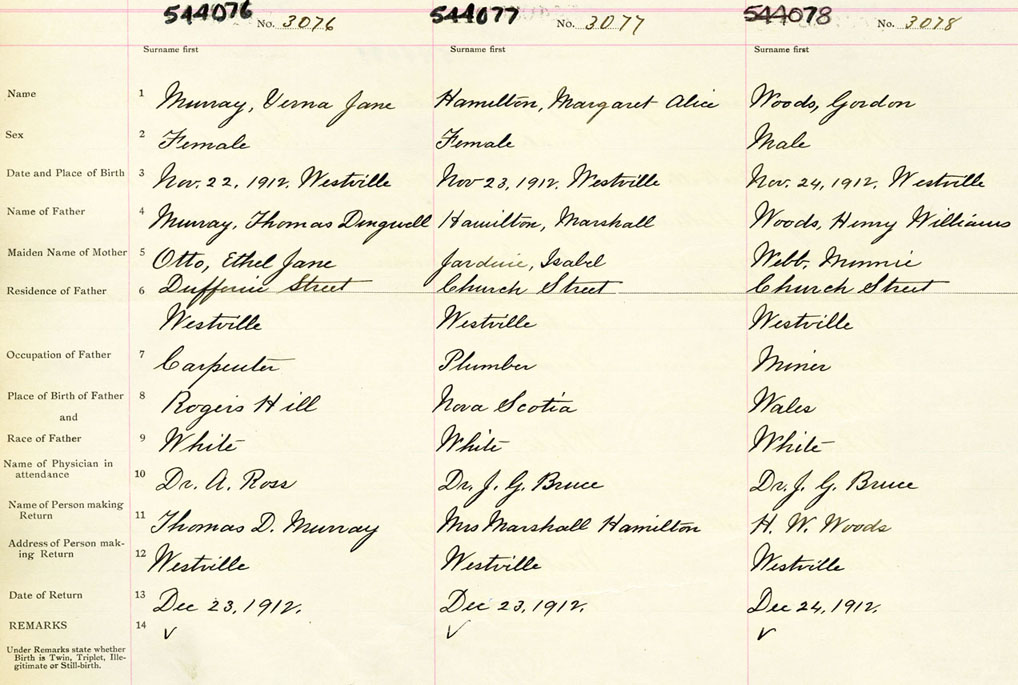 544076 No. 3076 544077 No. 3077 544078 No. 3078
Surname first Surname first Surname first
Name 1 Murray, Verna Jane Hamilton, Margaret Alice Woods, Gordon
Sex 2 Female Female Male
Date and Place of Birth 3 Nov. 22, 1912. Westville Nov 23, 1912. Westville Nov. 24, 1912. Westville
Name of Father 4 Murray, Thomas Dingwell Hamilton, Marshall Woods, Henry Williams
Maiden Name of Mother 5 Otto, Ethel Jane Jardine, Isabel Webb, Minnie
Residence of Father 6 Dufferin Street Church Street Church Street
Westville Westville Westville
Occupation of Father 7 Carpenter Plumber Miner
Place of Birth of Father 8 Rogers Hill Nova Scotia Wales
and
Race of Father 9 White White White
Name of Physician in
attendance 10 Dr. A. Ross Dr. J. G. Bruce Dr. J. G. Bruce
Name of Person making
Return 11 Thomas D. Murray Mrs Marshall Hamilton H. W. Woods
Address of Person mak-
ing Return 12 Westville Westville Westville
Date of Return 13 Dec 23, 1912. Dec 23, 1912. Dec 24, 1912.
REMARKS 14 ✓ ✓ ✓
Under Remarks state whether
Birth is Twin, Triplet, Ille-
gitimate or Still-birth.